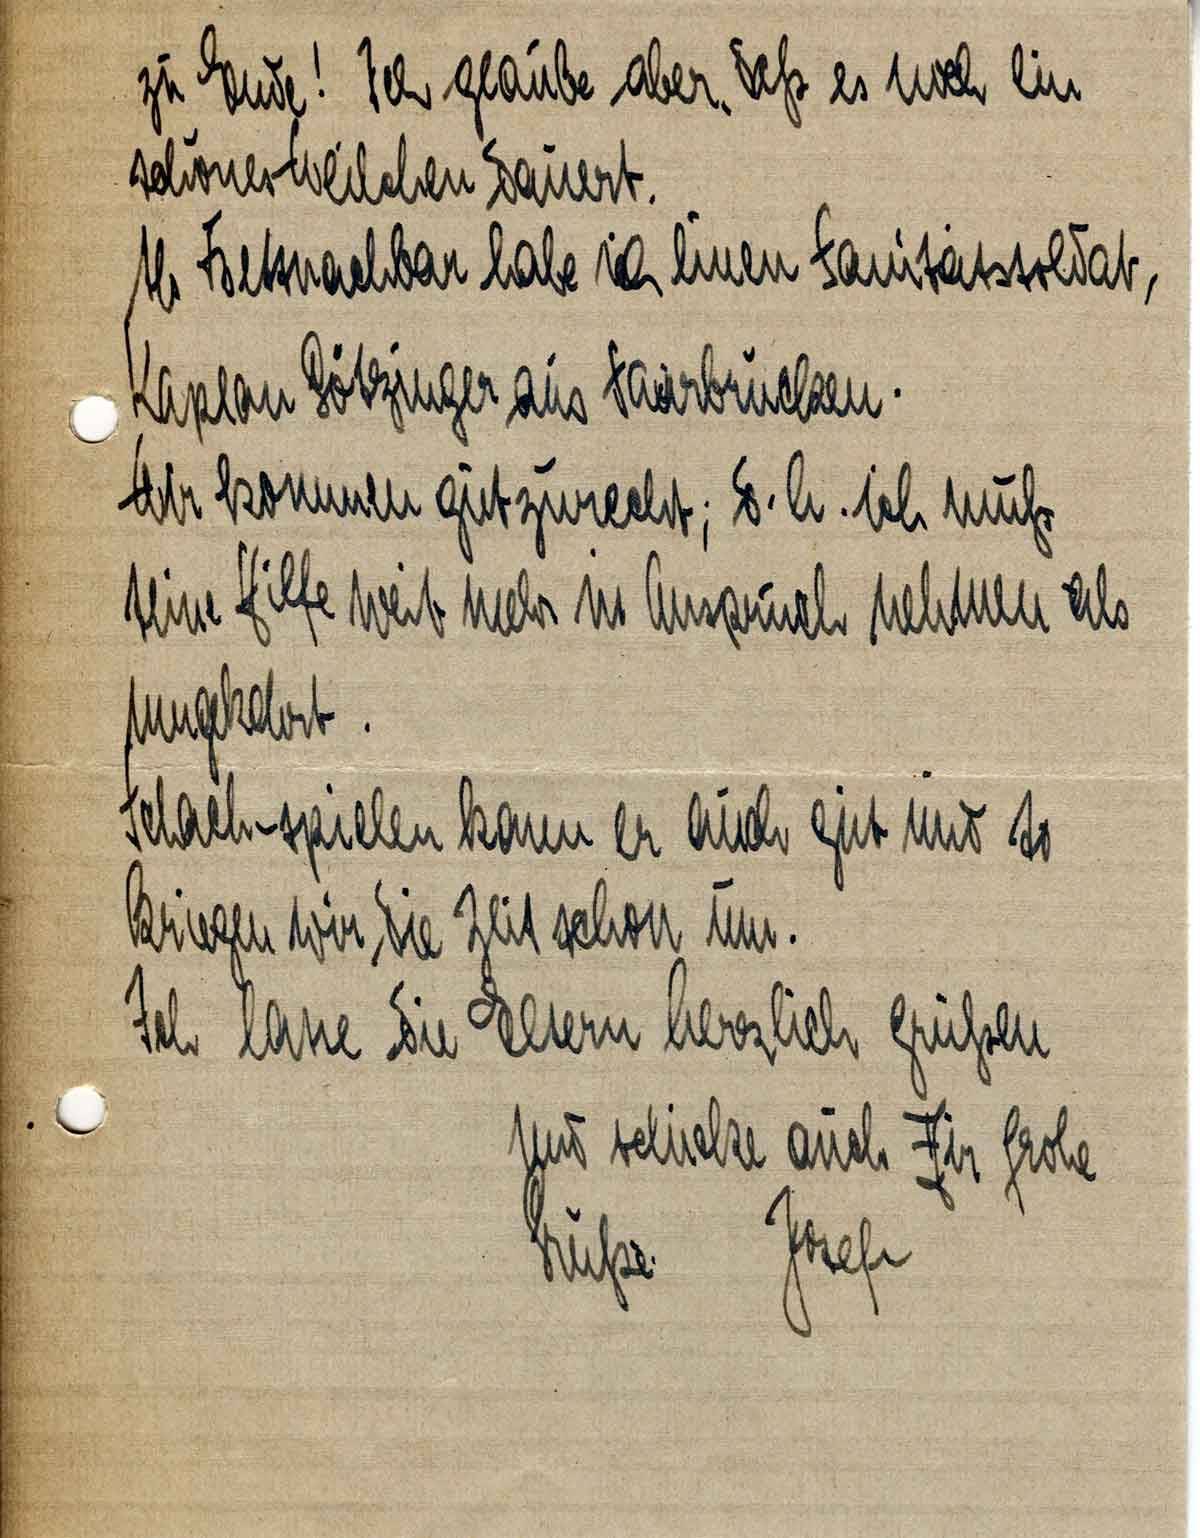 zu Ende! Ich glaube aber, daß es noch ein
schönes Weilchen dauert.
Als Bettnachbar habe ich einen Sanitätssoldat,
Kaplan Götzinger aus Saarbrücken.
Wir kommen gut zurecht; d. h. ich muß
seine Hilfe weit mehr in Anspruch nehmen als
umgekehrt.
Schach-spielen kann er auch gut und so
kriegen wir die Zeit schon um.
Ich lasse die Eltern herzlich grüßen
und schicke auch Dir frohe
Grüße. Josef